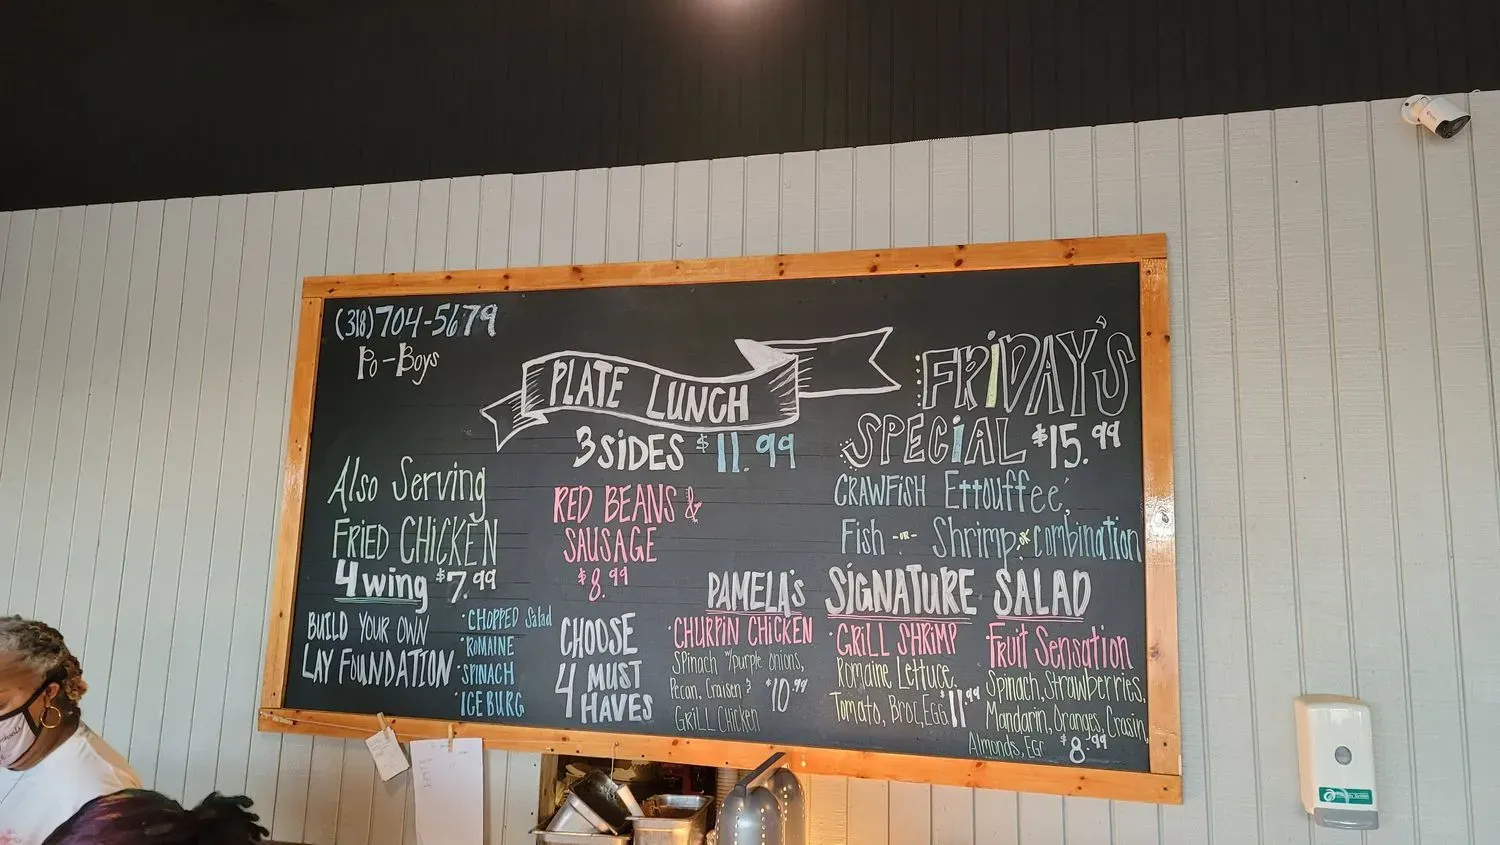 (318)704-5679
Po-Boys
PLATE LUNCH
3 SiDES $11.99
FRiDAY'S
SPECiAL $15.99
CRAWFISH Ettouffee'
Fish -or- Shrimp or combination
Also Serving
FRiED CHiCKEN
4 wing $7.99
RED BEANS &
SAUSAGE
$8.99
BUILD YOUR OWN
LAY FOUNDATION
• CHOPPED Salad
• ROMAINE
• SPINACH
• ICEBURG
CHOOSE
4 MUST
HAVES
PAMELA'S SiGNATURE SALAD
• CHURPIN CHICKEN
Spinach w/purple onions,
Pecan, Craisen &
Grill Chicken
$10.99
• GRILL SHRIMP
Romaine Lettuce
Tomato, Broc, EGG $11.99
Fruit Sensation
Spinach, Strawberries,
Mandarin, Oranges, Crasin,
Almonds, EGG $8.99